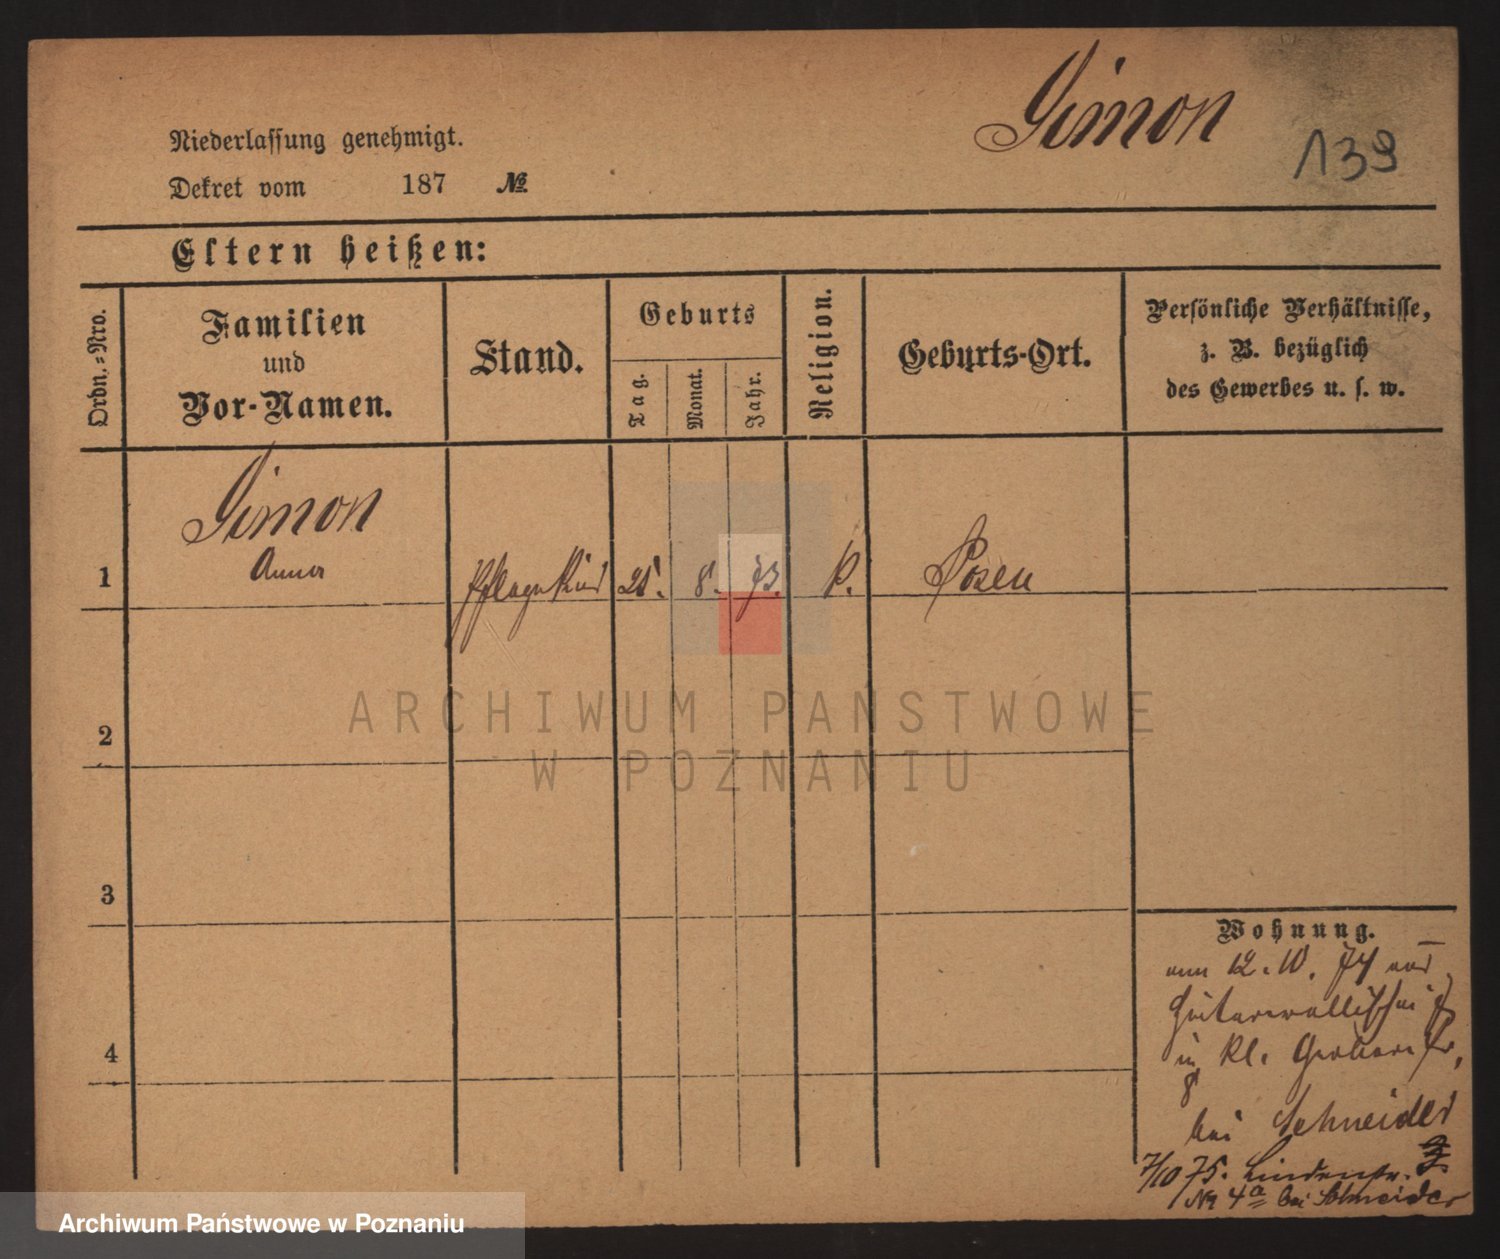 Simon
139
Niederlassung genehmigt.
Dekret vom 187 №
Eltern heißen:
Ordn.-Nro.
Familien
und
Vor-Namen.
Stand.
Geburts
Tag.
Monat.
Jahr.
Religion.
Geburts-Ort.
Persönliche Verhältnisse,
z. B. bezüglich
des Gewerbes u. s. w.
Simon
Anna
1 Pflegekind 8. 73. k. Posen
2
3
4
Wohnung.
12. 10. 74
in kl. Gerberstr.
8
bei Schneider
7/10 75. Lindenstr.
Nr 4a bei Schneider
ARCHIWUM PAŃSTWOWE
W POZNANIU
Archiwum Państwowe w Poznaniu